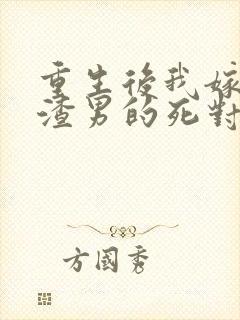 重生後我嫁
渣男的死對
方國秀